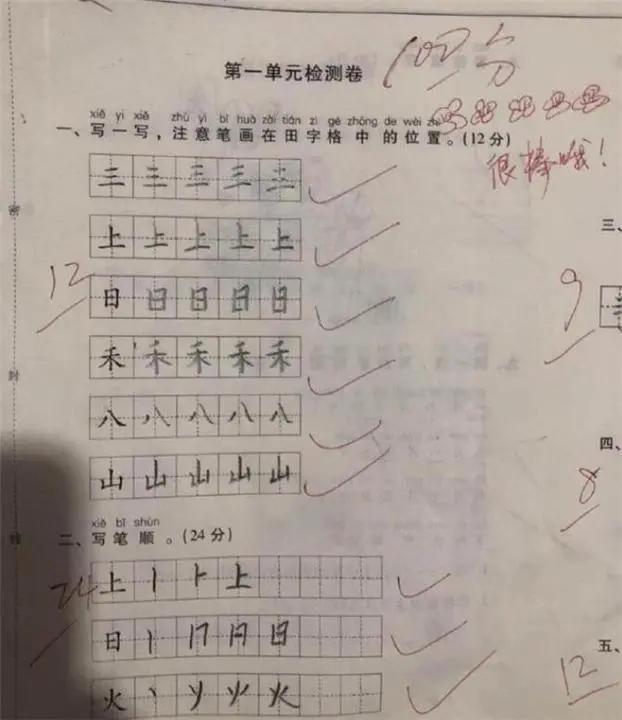 第一单元检测卷
100分
xiě yi xiě zhù yì bǐ huà zài tián zì gé zhōng de wèi zhi
一、写一写，注意笔画在田字格中的位置。(12分)
很棒哦！
三 三 三 三 三
上 上 上 上 上
12
日 日 日 日 日
禾 禾 禾 禾 禾
八 八 八 八 八
山 山 山 山 山
xiě bǐ shùn
二、写笔顺。(24分)
24
上 丨 ⺊ 上
日 丨 冂 月 日
火 丶 丷 火
三、
9
四、
8
五、
12
密
封
线